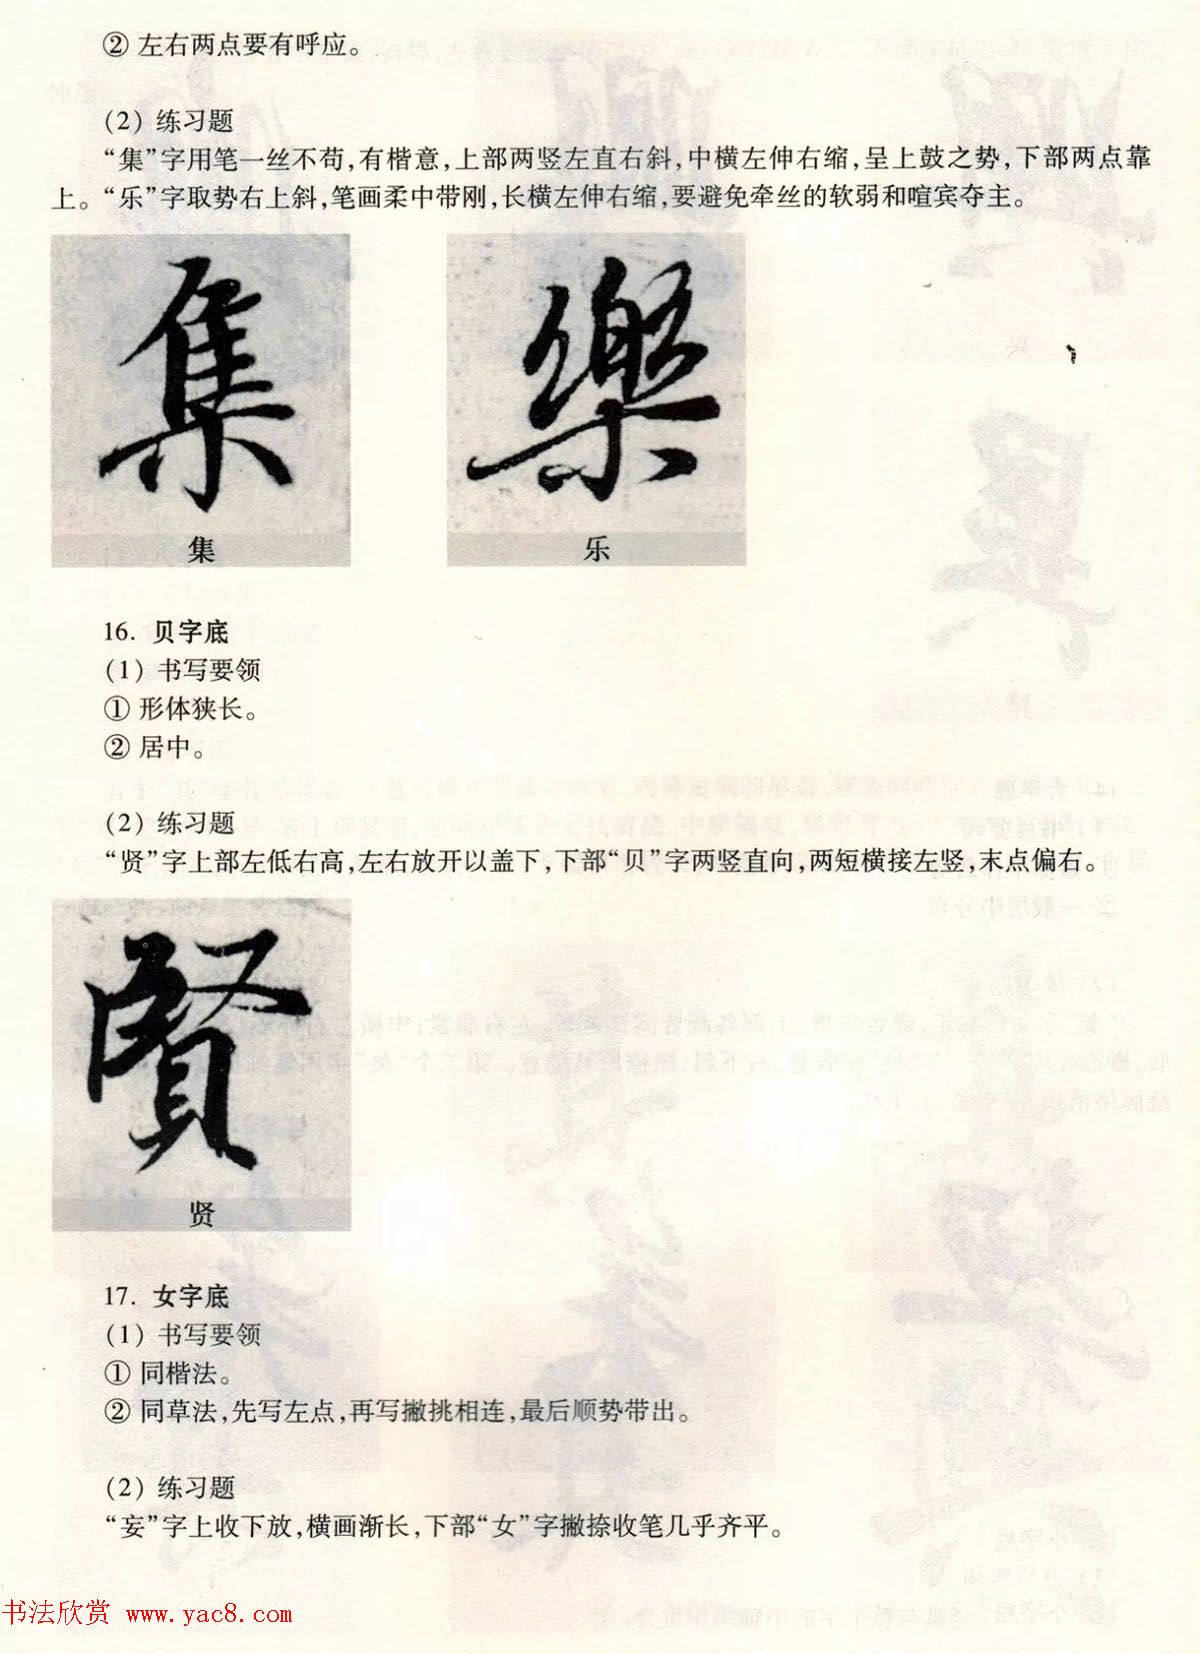 ② 左右两点要有呼应。
(2) 练习题
“集”字用笔一丝不苟,有楷意,上部两竖左直右斜,中横左伸右缩,呈上鼓之势,下部两点靠
上。“乐”字取势右上斜,笔画柔中带刚,长横左伸右缩,要避免牵丝的软弱和喧宾夺主。
集 樂
集 乐
16. 贝字底
(1) 书写要领
① 形体狭长。
② 居中。
(2) 练习题
“贤”字上部左低右高,左右放开以盖下,下部“贝”字两竖直向,两短横接左竖,末点偏右。
賢
贤
17. 女字底
(1) 书写要领
① 同楷法。
② 同草法,先写左点,再写撇挑相连,最后顺势带出。
(2) 练习题
“妄”字上收下放,横画渐长,下部“女”字撇捺收笔几乎齐平。
书法欣赏 www.yac8.com